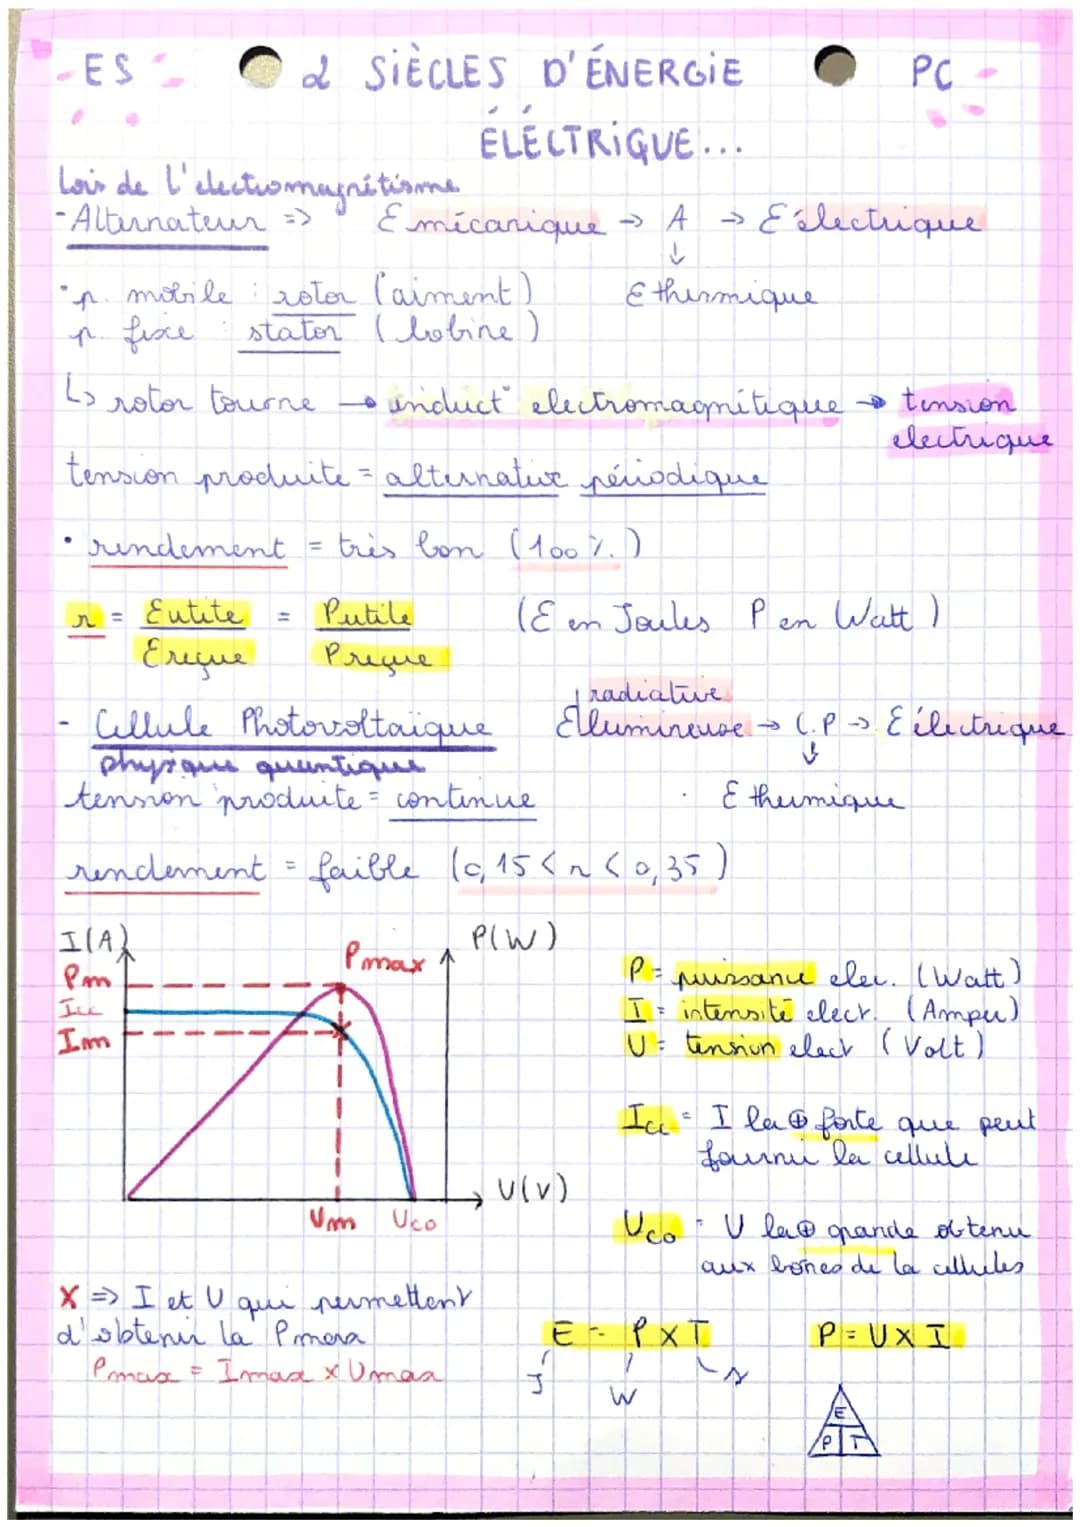 ES 2 SIÈCLES D'ÉNERGIE PC
ÉLÉCTRIQUE...
Lois de l'electromagnétisme
-Alternateur => E mécanique → A → E électrique
↓
• p. mobile : rotor (aiment) E thermique
p. fixe : stator (bobine)
↳ rotor tourne → induct° electromagnétique → tension
electrique
tension produite = alternative périodique
• rendement = très bon (100%.)
r = Eutile = Putile (E en Joules P en Watt)
Ereçue Preçue
radiative
- Cellule Photovoltaïque E lumineuse → C.P → E électrique
physique quantique ↓
tension produite = continue E thermique
rendement = faible (0,15 < r < 0,35)
I(A) P(W)
Pmax
Pm
Icc
Im
U(V)
Um Uco
P = puissance elec. (Watt)
I = intensité elect. (Amper)
U = tension elect (Volt)
Icc = I la ⊕ forte que peut
fournir la cellule
Uco = U la ⊕ grande obtenu
aux bornes de la cellules
X => I et U qui permettent
d'obtenir la Pmax
Pmax = Imax x Umax
E = P X T P = U X I
J W s
E
P T